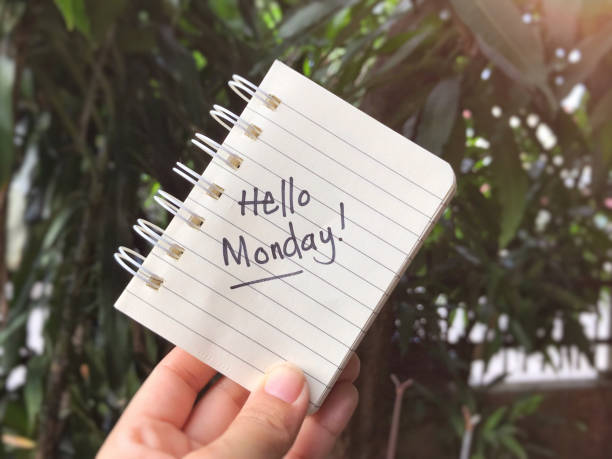 Hello
Monday!